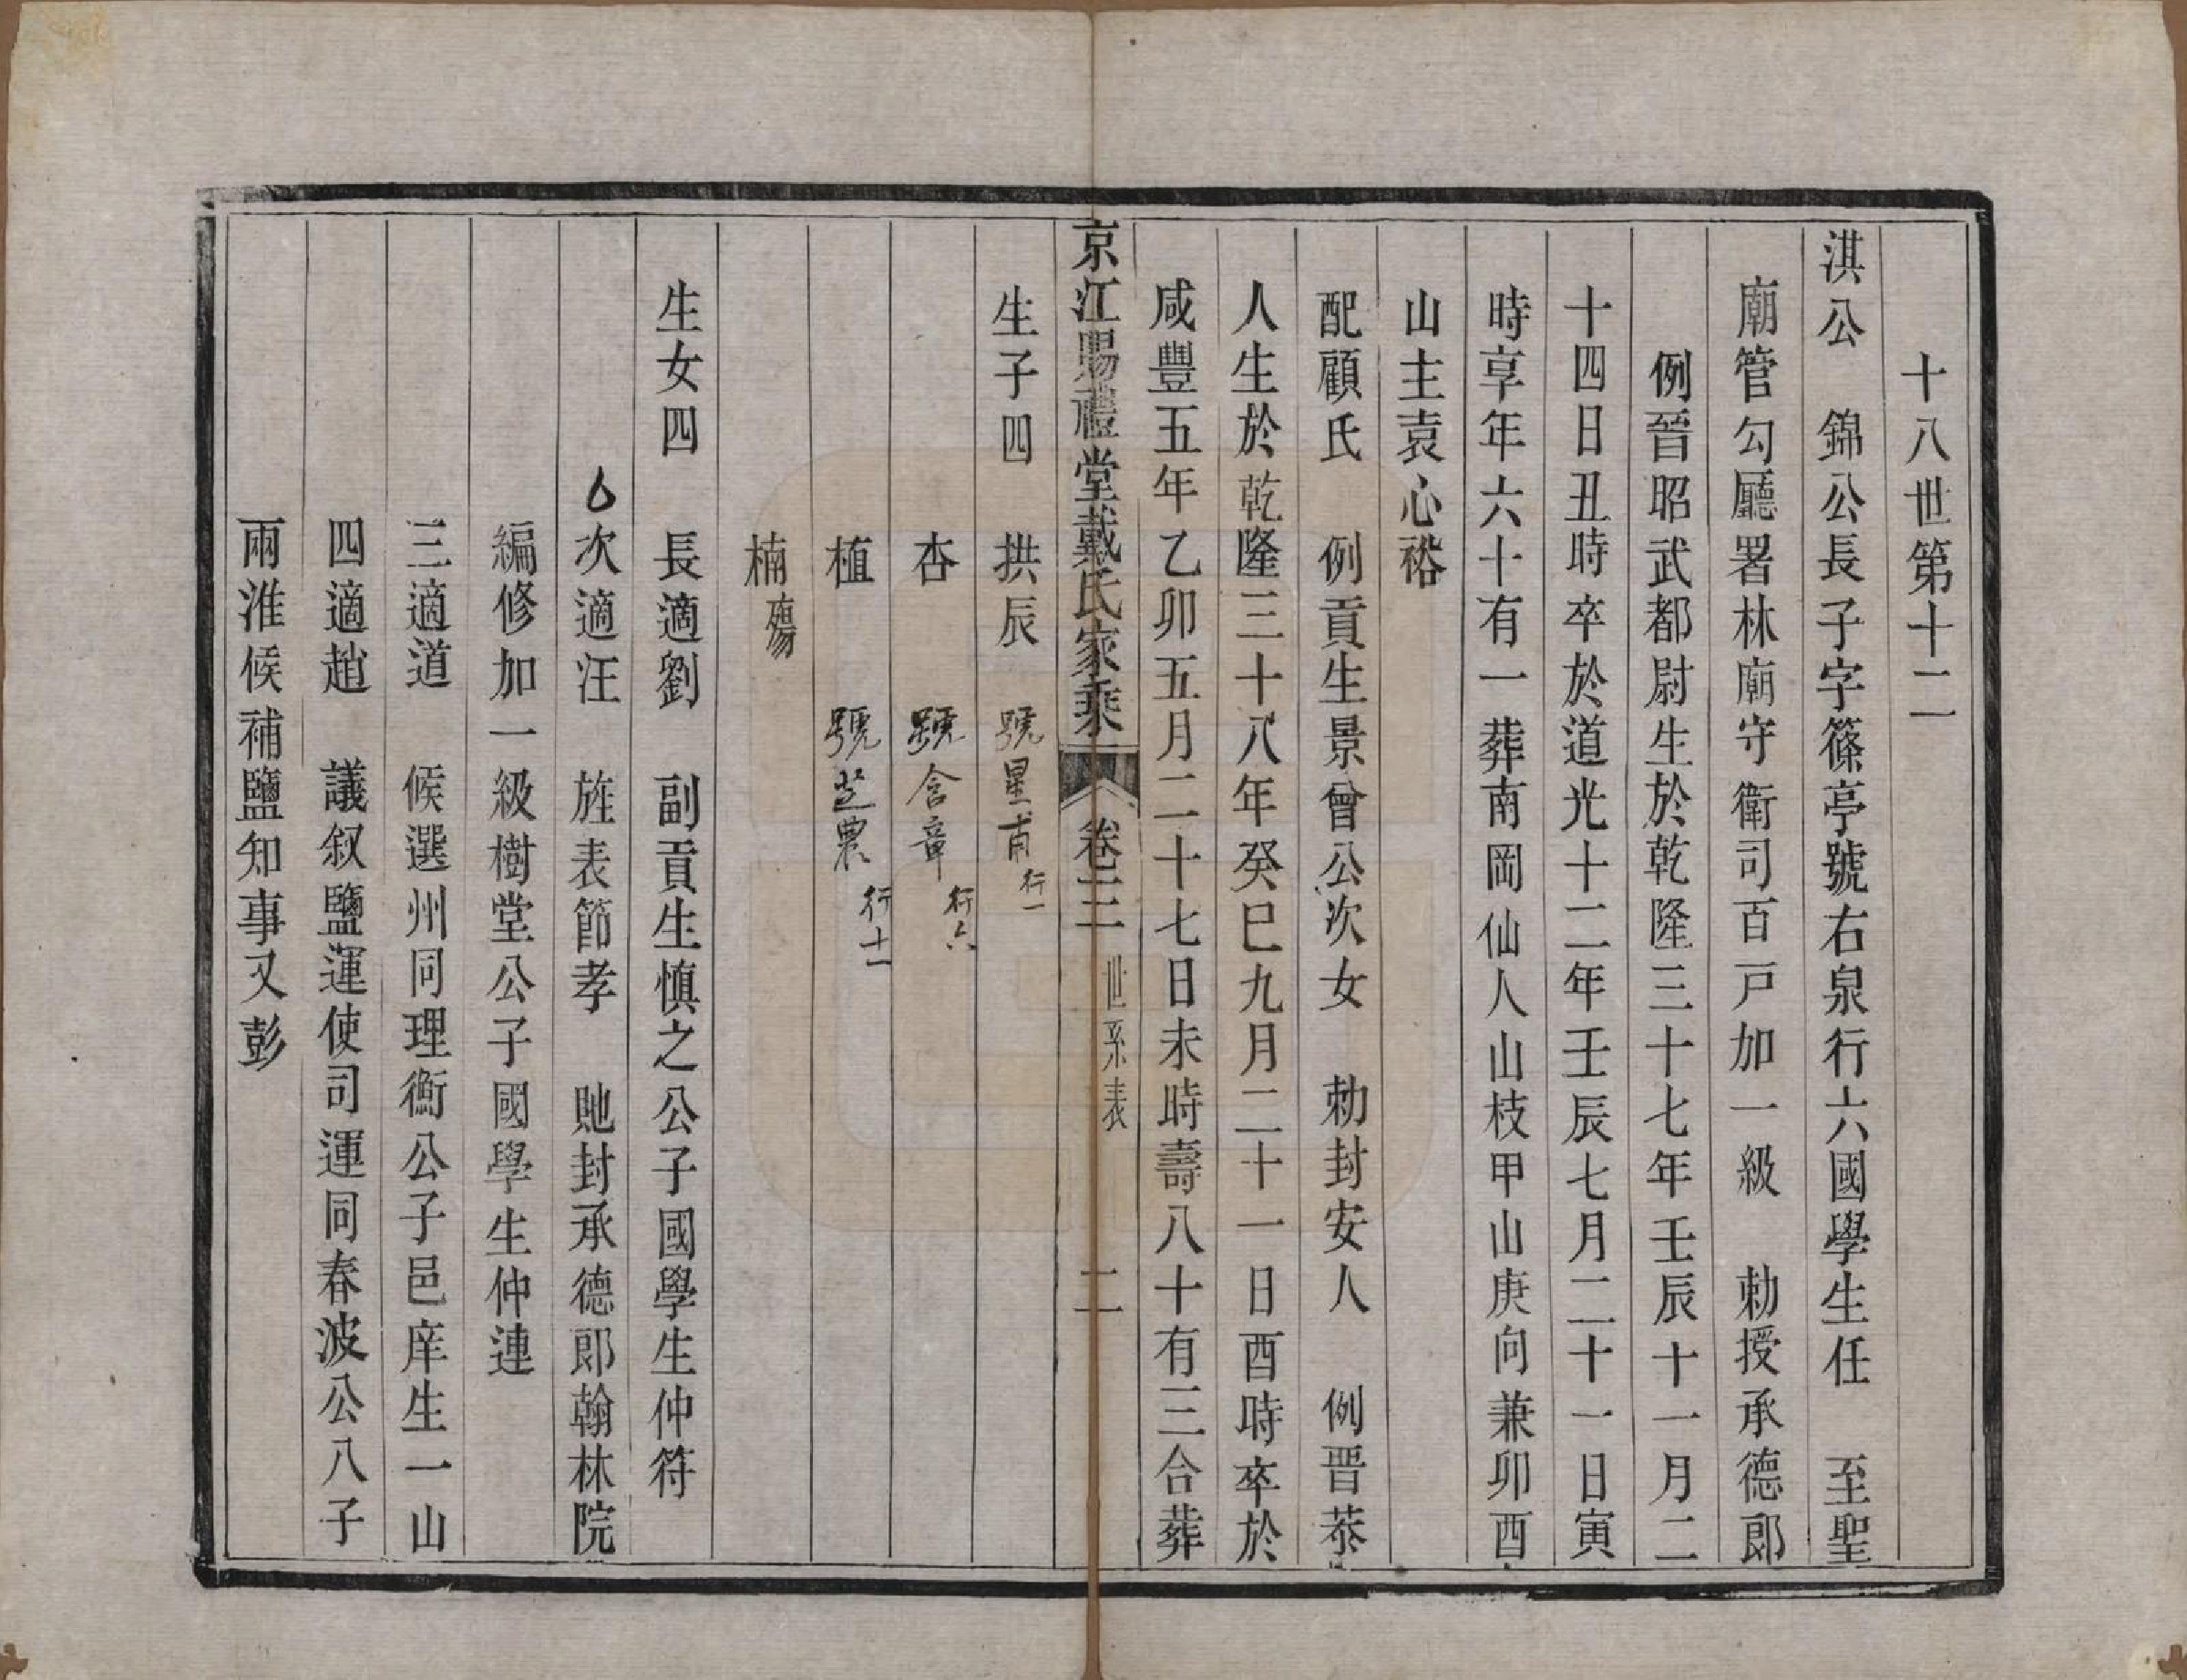 十八世第十二
淇公　錦公長子字篠亭號右泉行六國學生任　至聖
廟管勾廳署林廟守衛司百戸加一級　勅授承德郎
例晉昭武都尉生於乾隆三十七年壬辰十一月二
十四日丑時卒於道光十二年壬辰七月二十一日寅
時享年六十有一葬南岡仙人山枝甲山庚向兼卯酉
山主袁心裕
配顧氏　例貢生景曾公次女　勅封安人　例晋恭
人生於乾隆三十八年癸巳九月二十一日酉時卒於
咸豐五年乙卯五月二十七日未時壽八十有三合葬
京江賜禮堂戴氏家乘　卷三　世系表　二
生子四　拱辰　號星甫　行一
杏　號含章　行六
植　號芝農　行十一
楠殤
生女四　長適劉　副貢生慎之公子國學生仲符
次適汪　旌表節孝　貤封承德郎翰林院
編修加一級樹堂公子國學生仲連
三適道　候選州同理衡公子邑庠生一山
四適趙　議叙鹽運使司運同春波公八子
兩淮候補鹽知事又彭